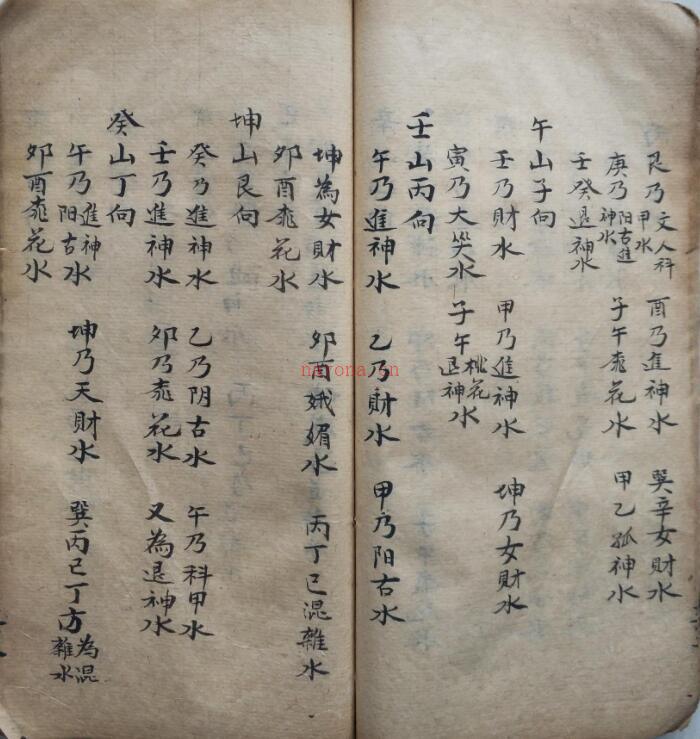 艮乃文人科甲水 酉乃進神水 巽辛女財水
庚乃阳古進神水 子午花水 甲乙孤神水
壬癸退神水
午山子向
壬乃財水 甲乃進神水 坤乃女財水
寅乃大哭水 子午桃花退神水
壬山丙向
午乃進神水 乙乃財水 甲乃阳古水
坤為女財水 卯酉娥媚水 丙丁巳混雜水
卯酉花水
坤山艮向
癸乃進神水 乙乃阴古水 午乃科甲水
壬乃進神水 卯乃花水 又為退神水
癸山丁向
午乃阳古進神水 坤乃天財水 巽丙巳丁方為混雜水
卯酉花水
nayona.cn